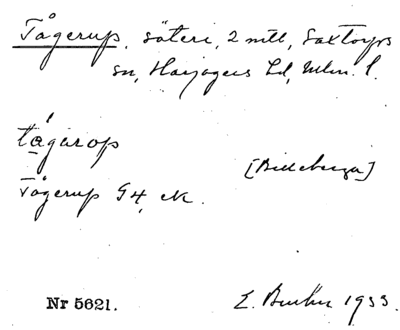 Tågerup, säteri, 2 mtl, Saxtorps
sn, Harjagers hd, Mlm. l.
tågarop
[Billeberga]
Tågerup G4, ek.
Nr 5621. E. 1933.